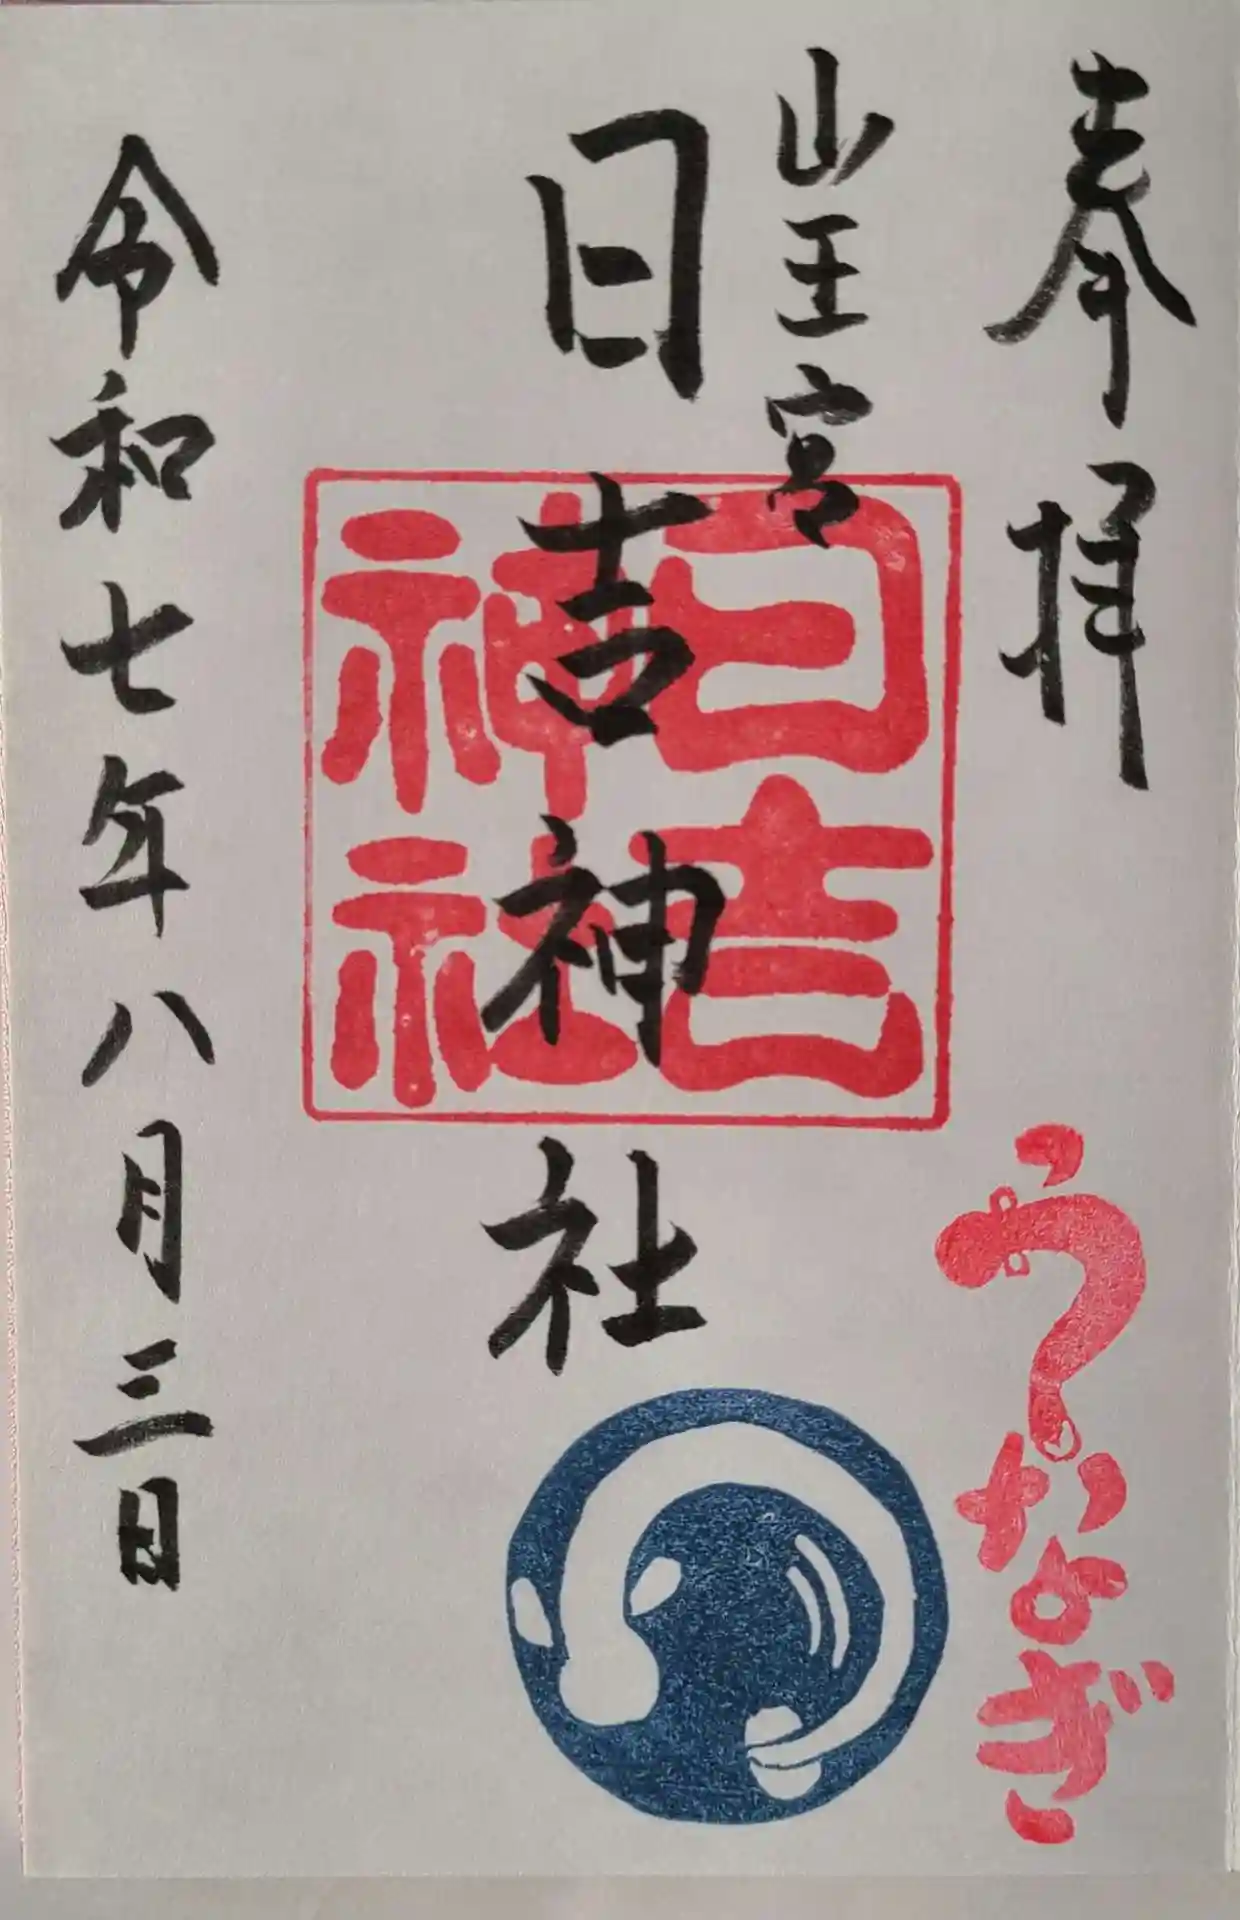 奉拝
山王宮
日吉神社
日吉
神社
うなぎ
令和七年八月三日